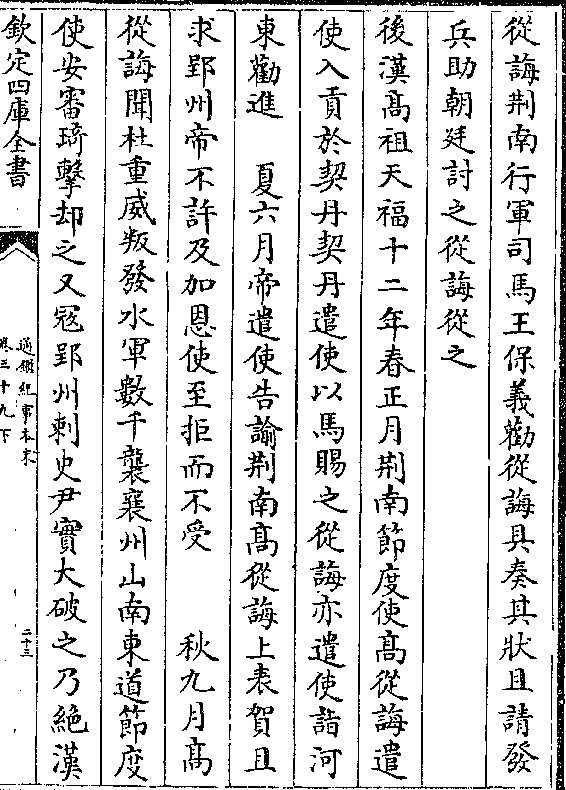 從誨荆南行軍司馬王保義勸從誨具奏其狀且請發
兵助朝廷討之從誨從之
後漢髙祖天福十二年春正月荆南節度使髙從誨遣
使入貢於契丹契丹遣使以馬賜之從誨亦遣使詣河
東勸進　夏六月帝遣使告諭荆南髙從誨上表賀且
求郢州帝不許及加恩使至拒而不受　　秋九月髙
從誨聞杜重威叛發水軍數千襲襄州山南東道節度
使安審琦擊却之又寇郢州剌史尹實大破之乃絶漢
欽定四庫全書
通鑑紀事本末
卷三十九下
二十三